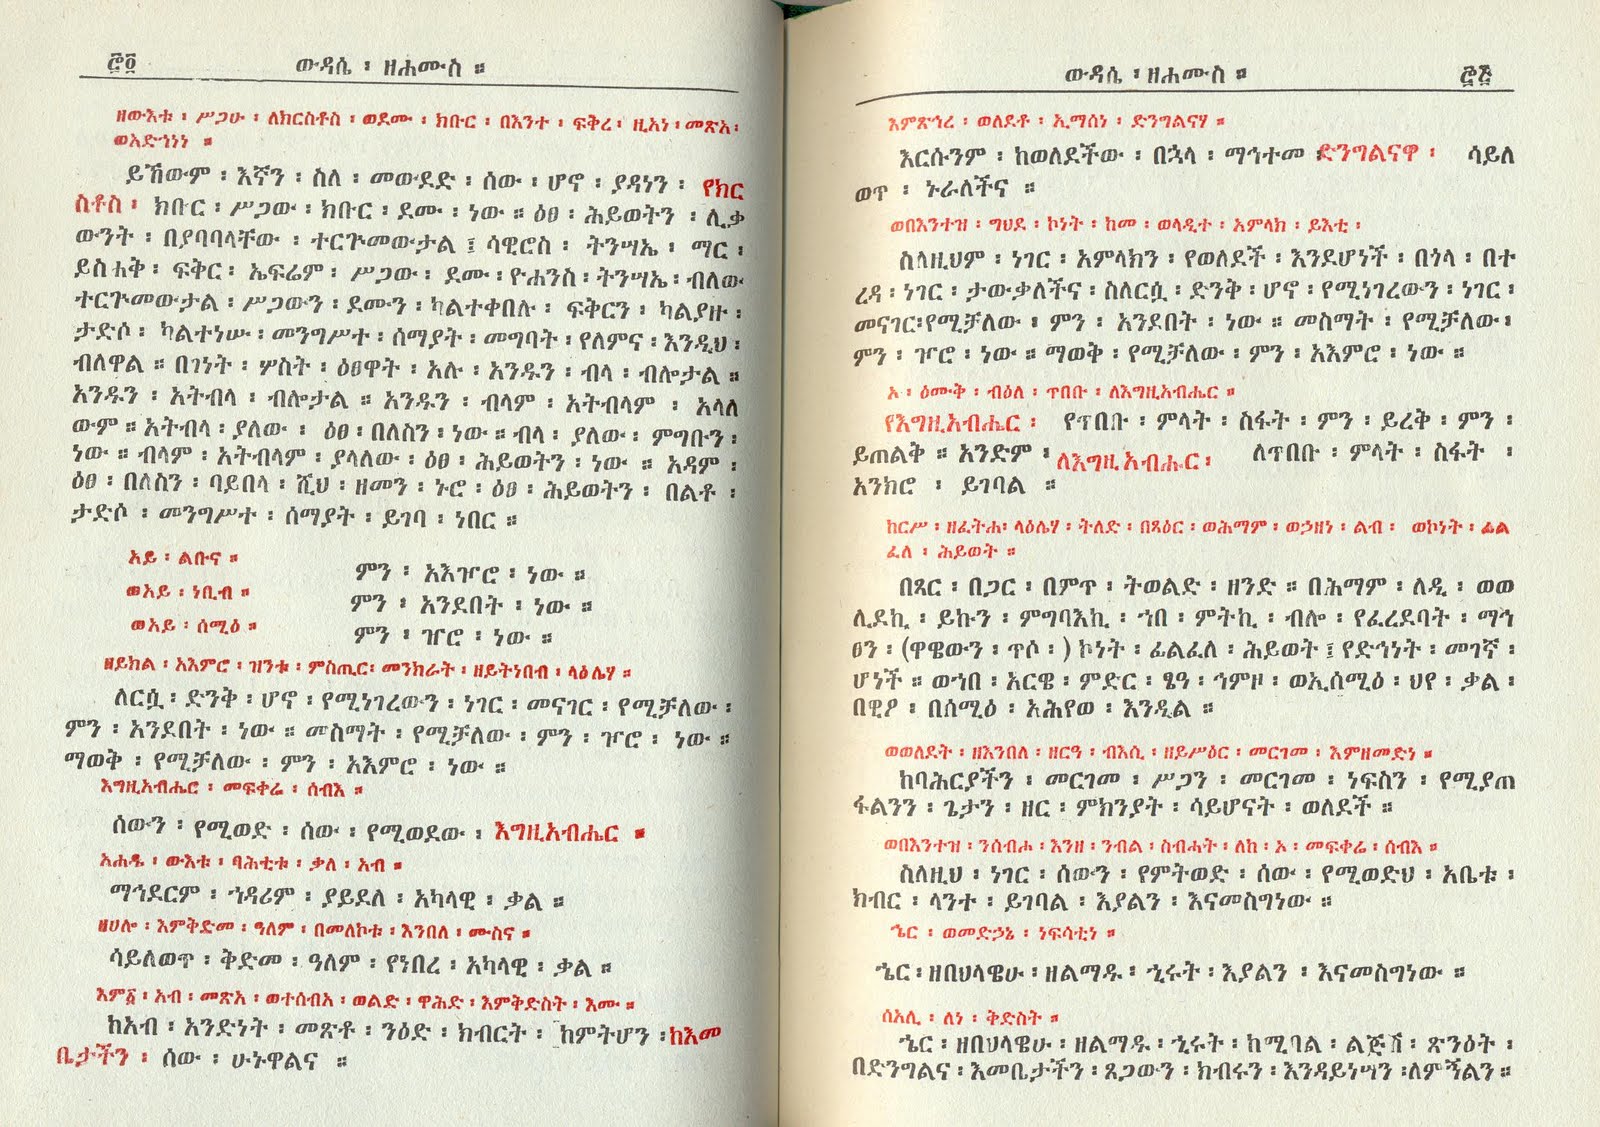 ፸፬
ውዳሴ ፡ ዘሐሙስ ።
ዘውእቱ ፡ ሥጋሁ ፡ ለክርስቶስ ፡ ወደሙ ፡ ክቡር ፡ በእንተ ፡ ፍቅረ ፡ ዚአነ ፡ መጽአ ፡
ወአድኀነነ ።
ይኸውም ፡ እኛን ፡ ስለ ፡ መውደድ ፡ ሰው ፡ ሆኖ ፡ ያዳነን ፡ የክር
ስቶስ ፡ ክቡር ፡ ሥጋው ፡ ክቡር ፡ ደሙ ፡ ነው ። ዕፀ ፡ ሕይወትን ፡ ሊቃ
ውንት ፡ በያባባላቸው ፡ ተርጕመውታል ፤ ሳዊሮስ ፡ ትንሣኤ ፡ ማር ፡
ይስሐቅ ፡ ፍቅር ፡ ኤፍሬም ፡ ሥጋው ፡ ደሙ ፡ ዮሐንስ ፡ ትንሣኤ ፡ ብለው
ተርጕመውታል ፡ ሥጋውን ፡ ደሙን ፡ ካልተቀበሉ ፡ ፍቅርን ፡ ካልያዙ ፡
ታድሶ ፡ ካልተነሡ ፡ መንግሥተ ፡ ሰማያት ፡ መግባት ፡ የለምና ፡ እንዲህ ፡
ብለዋል ። በገነት ፡ ሦስት ፡ ዕፀዋት ፡ አሉ ፡ አንዱን ፡ ብላ ፡ ብሎታል ።
አንዱን ፡ አትብላ ፡ ብሎታል ። አንዱን ፡ ብላም ፡ አትብላም ፡ አላለ
ውም ። አትብላ ፡ ያለው ፡ ዕፀ ፡ በለስን ፡ ነው ። ብላ ፡ ያለው ፡ ምግቡን ፡
ነው ። ብላም ፡ አትብላም ፡ ያላለው ፡ ዕፀ ፡ ሕይወትን ፡ ነው ። አዳም ፡
ዕፀ ፡ በለስን ፡ ባይበላ ፡ ሺህ ፡ ዘመን ፡ ኑሮ ፡ ዕፀ ፡ ሕይወትን ፡ በልቶ ፡
ታድሶ ፡ መንግሥተ ፡ ሰማያት ፡ ይገባ ፡ ነበር ።
አይ ፡ ልቡና ።
ምን ፡ አእምሮ ፡ ነው ።
ወአይ ፡ ነቢብ ።
ምን ፡ አንደበት ፡ ነው ።
ወአይ ፡ ሰሚዕ ።
ምን ፡ ዦሮ ፡ ነው ።
ዘይክል ፡ አእምሮ ፡ ዝንቱ ፡ ምስጢር ፡ መንክራት ፡ ዘይትነበብ ፡ ላዕሌሃ ።
ለርሷ ፡ ድንቅ ፡ ሆኖ ፡ የሚነገረውን ፡ ነገር ፡ መናገር ፡ የሚቻለው ፡
ምን ፡ አንደበት ፡ ነው ። መስማት ፡ የሚቻለው ፡ ምን ፡ ዦሮ ፡ ነው ።
ማወቅ ፡ የሚቻለው ፡ ምን ፡ አእምሮ ፡ ነው ።
እግዚአብሔር ፡ መፍቀሬ ፡ ሰብእ ።
ሰውን ፡ የሚወድ ፡ ሰው ፡ የሚወደው ፡ እግዚአብሔር ።
አሐዱ ፡ ውእቱ ፡ ባሕቲቱ ፡ ቃለ ፡ አብ ።
ማኅደርም ፡ ኀዳሪም ፡ ያይደለ ፡ አካላዊ ፡ ቃል ።
ዘሀሎ ፡ እምቅድመ ፡ ዓለም ፡ በመለኮቱ ፡ እንበለ ፡ ሙስና ።
ሳይለወጥ ፡ ቅድመ ፡ ዓለም ፡ የነበረ ፡ አካላዊ ፡ ቃል ።
እም፩ ፡ አብ ፡ መጽአ ፡ ወተሰብአ ፡ ወልድ ፡ ዋሕድ ፡ እምቅድስት ፡ እሙ ።
ከአብ ፡ አንድነት ፡ መጽቶ ፡ ንዕድ ፡ ክብርት ፡ ከምትሆን ፡ ከእመ
ቤታችን ፡ ሰው ፡ ሁኑዋልና ።
ውዳሴ ፡ ዘሐሙስ ።
፸፭
እምጽኅረ ፡ ወለደቶ ፡ ኢማሰነ ፡ ድንግልናሃ ።
እርሱንም ፡ ከወለደችው ፡ በኋላ ፡ ማኅተመ ፡ ድንግልናዋ ፡ ሳይለ
ወጥ ፡ ኑራለችና ።
ወበእንተዝ ፡ ግህደ ፡ ኮነት ፡ ከመ ፡ ወላዲተ ፡ አምላክ ፡ ይእቲ ፡
ስለዚህም ፡ ነገር ፡ አምላክን ፡ የወለደች ፡ እንደሆነች ፡ በጎላ ፡ በተ
ረዳ ፡ ነገር ፡ ታውቃለችና ፡ ስለርሷ ፡ ድንቅ ፡ ሆኖ ፡ የሚነገረውን ፡ ነገር ፡
መናገር ፡ የሚቻለው ፡ ምን ፡ አንደበት ፡ ነው ። መስማት ፡ የሚቻለው ፡
ምን ፡ ዦሮ ፡ ነው ። ማወቅ ፡ የሚቻለው ፡ ምን ፡ አእምሮ ፡ ነው ።
ኦ ፡ ዕሙቅ ፡ ብዕለ ፡ ጥበቡ ፡ ለእግዚአብሔር ።
የእግዚአብሔር ፡ የጥበቡ ፡ ምላት ፡ ስፋት ፡ ምን ፡ ይረቅ ፡ ምን ፡
ይጠልቅ ። አንድም ፡ ለእግዚአብሔር ፡ ለጥበቡ ፡ ምላት ፡ ስፋት ፡
አንክሮ ፡ ይገባል ።
ከርሥ ፡ ዘፈትሐ ፡ ላዕሌሃ ፡ ትለድ ፡ በጻዕር ፡ ወሕማም ፡ ወኃዘነ ፡ ልብ ፡ ወኮነት ፡ ፈል
ፈለ ፡ ሕይወት ።
በጻር ፡ በጋር ፡ በምጥ ፡ ትወልድ ፡ ዘንድ ። በሕማም ፡ ለዲ ፡ ወወ
ሊደኪ ፡ ይኩን ፡ ምግባእኪ ፡ ኀበ ፡ ምትኪ ፡ ብሎ ፡ የፈረደባት ፡ ማኅ
ፀን ፡ (ዋዌውን ፡ ጥሶ ፡) ኮነት ፡ ፈልፈለ ፡ ሕይወት ፤ የድኅነት ፡ መገኛ ፡
ሆነች ። ወኀበ ፡ አርዌ ፡ ምድር ፡ ፄዓ ፡ ኅምዞ ፡ ወኢሰሚዕ ፡ ህየ ፡ ቃል ፡
በዊዖ ፡ በሰሚዕ ፡ አሕየወ ፡ እንዲል ።
ወወለደት ፡ ዘእንበለ ፡ ዘርዓ ፡ ብእሲ ፡ ዘይሥዕር ፡ መርገመ ፡ እምዘመድነ ።
ከባሕርያችን ፡ መርገመ ፡ ሥጋን ፡ መርገመ ፡ ነፍስን ፡ የሚያጠ
ፋልንን ፡ ጌታን ፡ ዘር ፡ ምክንያት ፡ ሳይሆናት ፡ ወለደች ።
ወበእንተዝ ፡ ንሰብሖ ፡ እንዘ ፡ ንብል ፡ ስብሓት ፡ ለከ ፡ ኦ ፡ መፍቀሬ ፡ ሰብእ ።
ስለዚህ ፡ ነገር ፡ ሰውን ፡ የምትወድ ፡ ሰው ፡ የሚወድህ ፡ አቤቱ ፡
ክብር ፡ ላንተ ፡ ይገባል ፡ እያልን ፡ እናመስግነው ።
ኄር ፡ ወመድኃኔ ፡ ነፍሳቲነ ።
ኄር ፡ ዘበህላዌሁ ፡ ዘልማዱ ፡ ኂሩት ፡ እያልን ፡ እናመስግነው ።
ሰአሊ ፡ ለነ ፡ ቅድስት ።
ኄር ፡ ዘበህላዌሁ ፡ ዘልማዱ ፡ ኂሩት ፡ ከሚባል ፡ ልጅሽ ፡ ጽንዕት ፡
በድንግልና ፡ እመቤታችን ፡ ጸጋውን ፡ ክብሩን ፡ እንዳይነሣን ፡ ለምኝልን ።